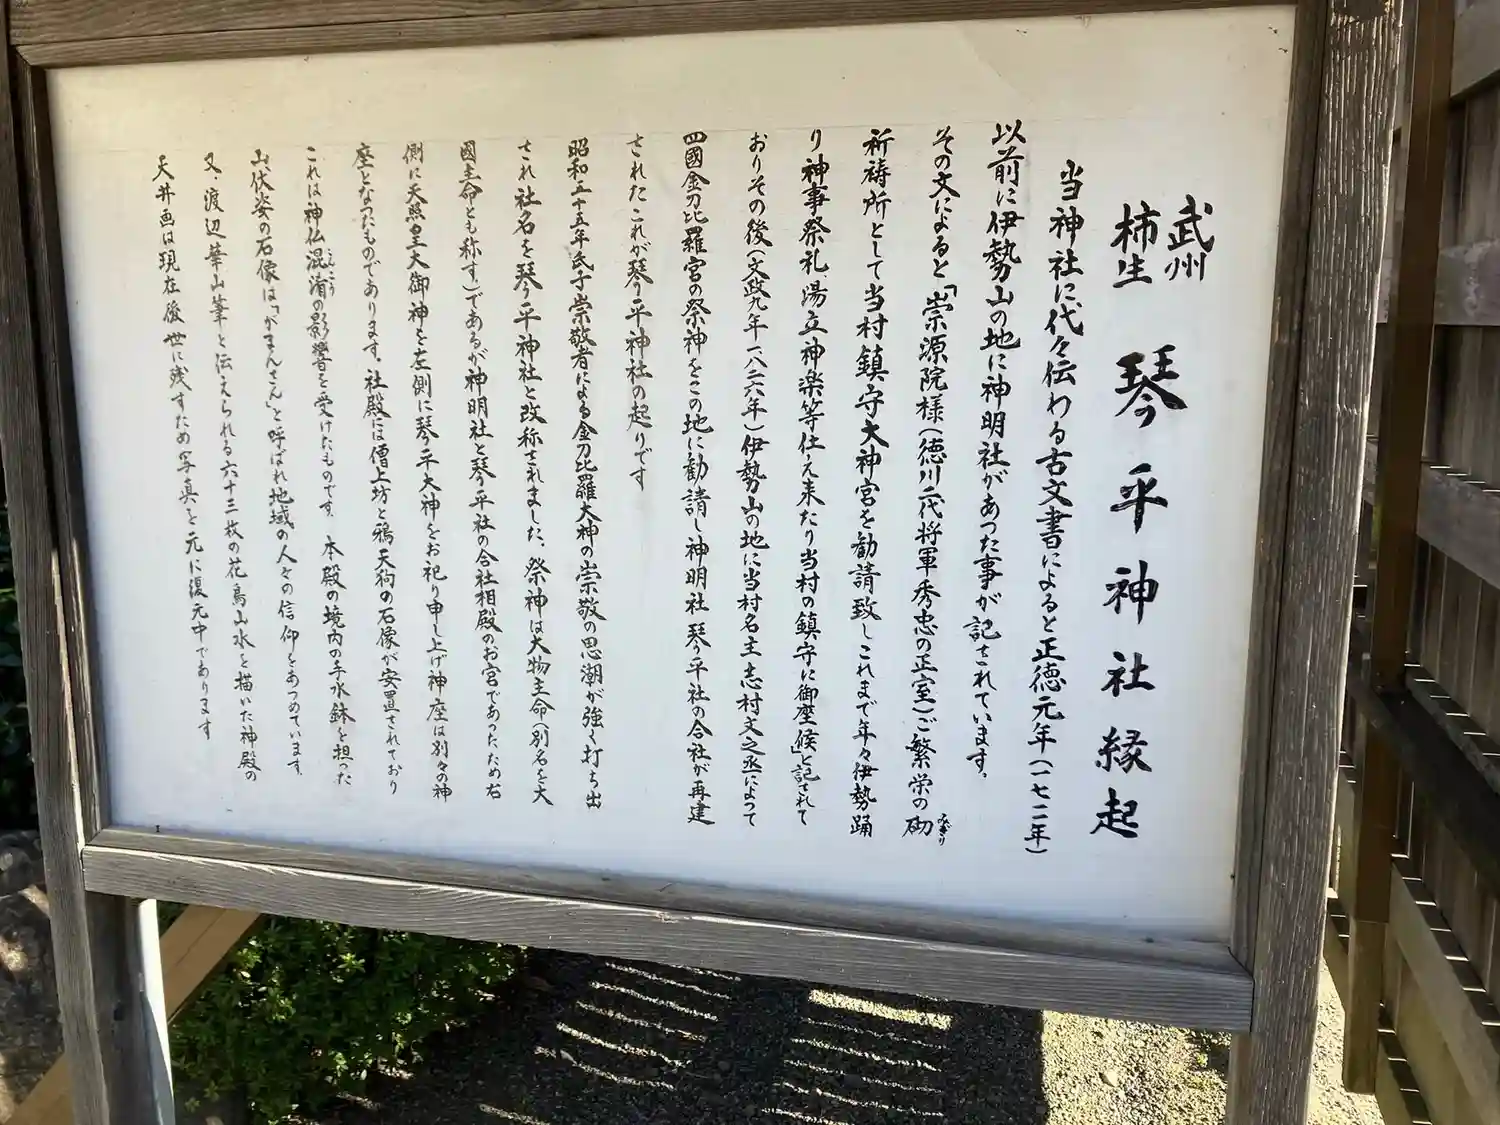 武州
柿生
琴平神社縁起
当神社に代々伝わる古文書によると正徳元年(一七一一年)
以前に伊勢山の地に神明社があった事が記されています。
その文によると「崇源院様(徳川二代将軍秀忠の正室)ご繁栄の砌
みぎり
祈祷所として当村鎮守大神宮を勧請致しこれまで年々伊勢踊
り神事祭礼湯立神楽等仕え来たり当村の鎮守に御座候」と記されて
おりその後(文政九年一八二六年)伊勢山の地に当村名主志村文之丞によって
四國金刀比羅宮の祭神をこの地に勧請し神明社琴平社の合社が再建
されたこれが琴平神社の起りです
昭和五十五年氏子崇敬者による金刀比羅大神の崇敬の思潮が強く打ち出
され社名を琴平神社と改称されました、祭神は大物主命(別名を大
國主命とも称す)であるが神明社と琴平社の合社相殿のお宮であったため右
側に天照皇大御神を左側に琴平大神をお祀り申し上げ神座は別々の神
座となったものであります。社殿には僧上坊と鴉天狗の石像が安置されており
これは神仏混淆の影響を受けたものです。本殿の境内の手水鉢を担った
こんこう
山伏姿の石像は「がまんさん」と呼ばれ地域の人々の信仰をあつめています。
又、渡辺華山筆と伝えられる六十三枚の花鳥山水を描いた神殿の
天井画は現在後世に残すため写真を元に復元中であります